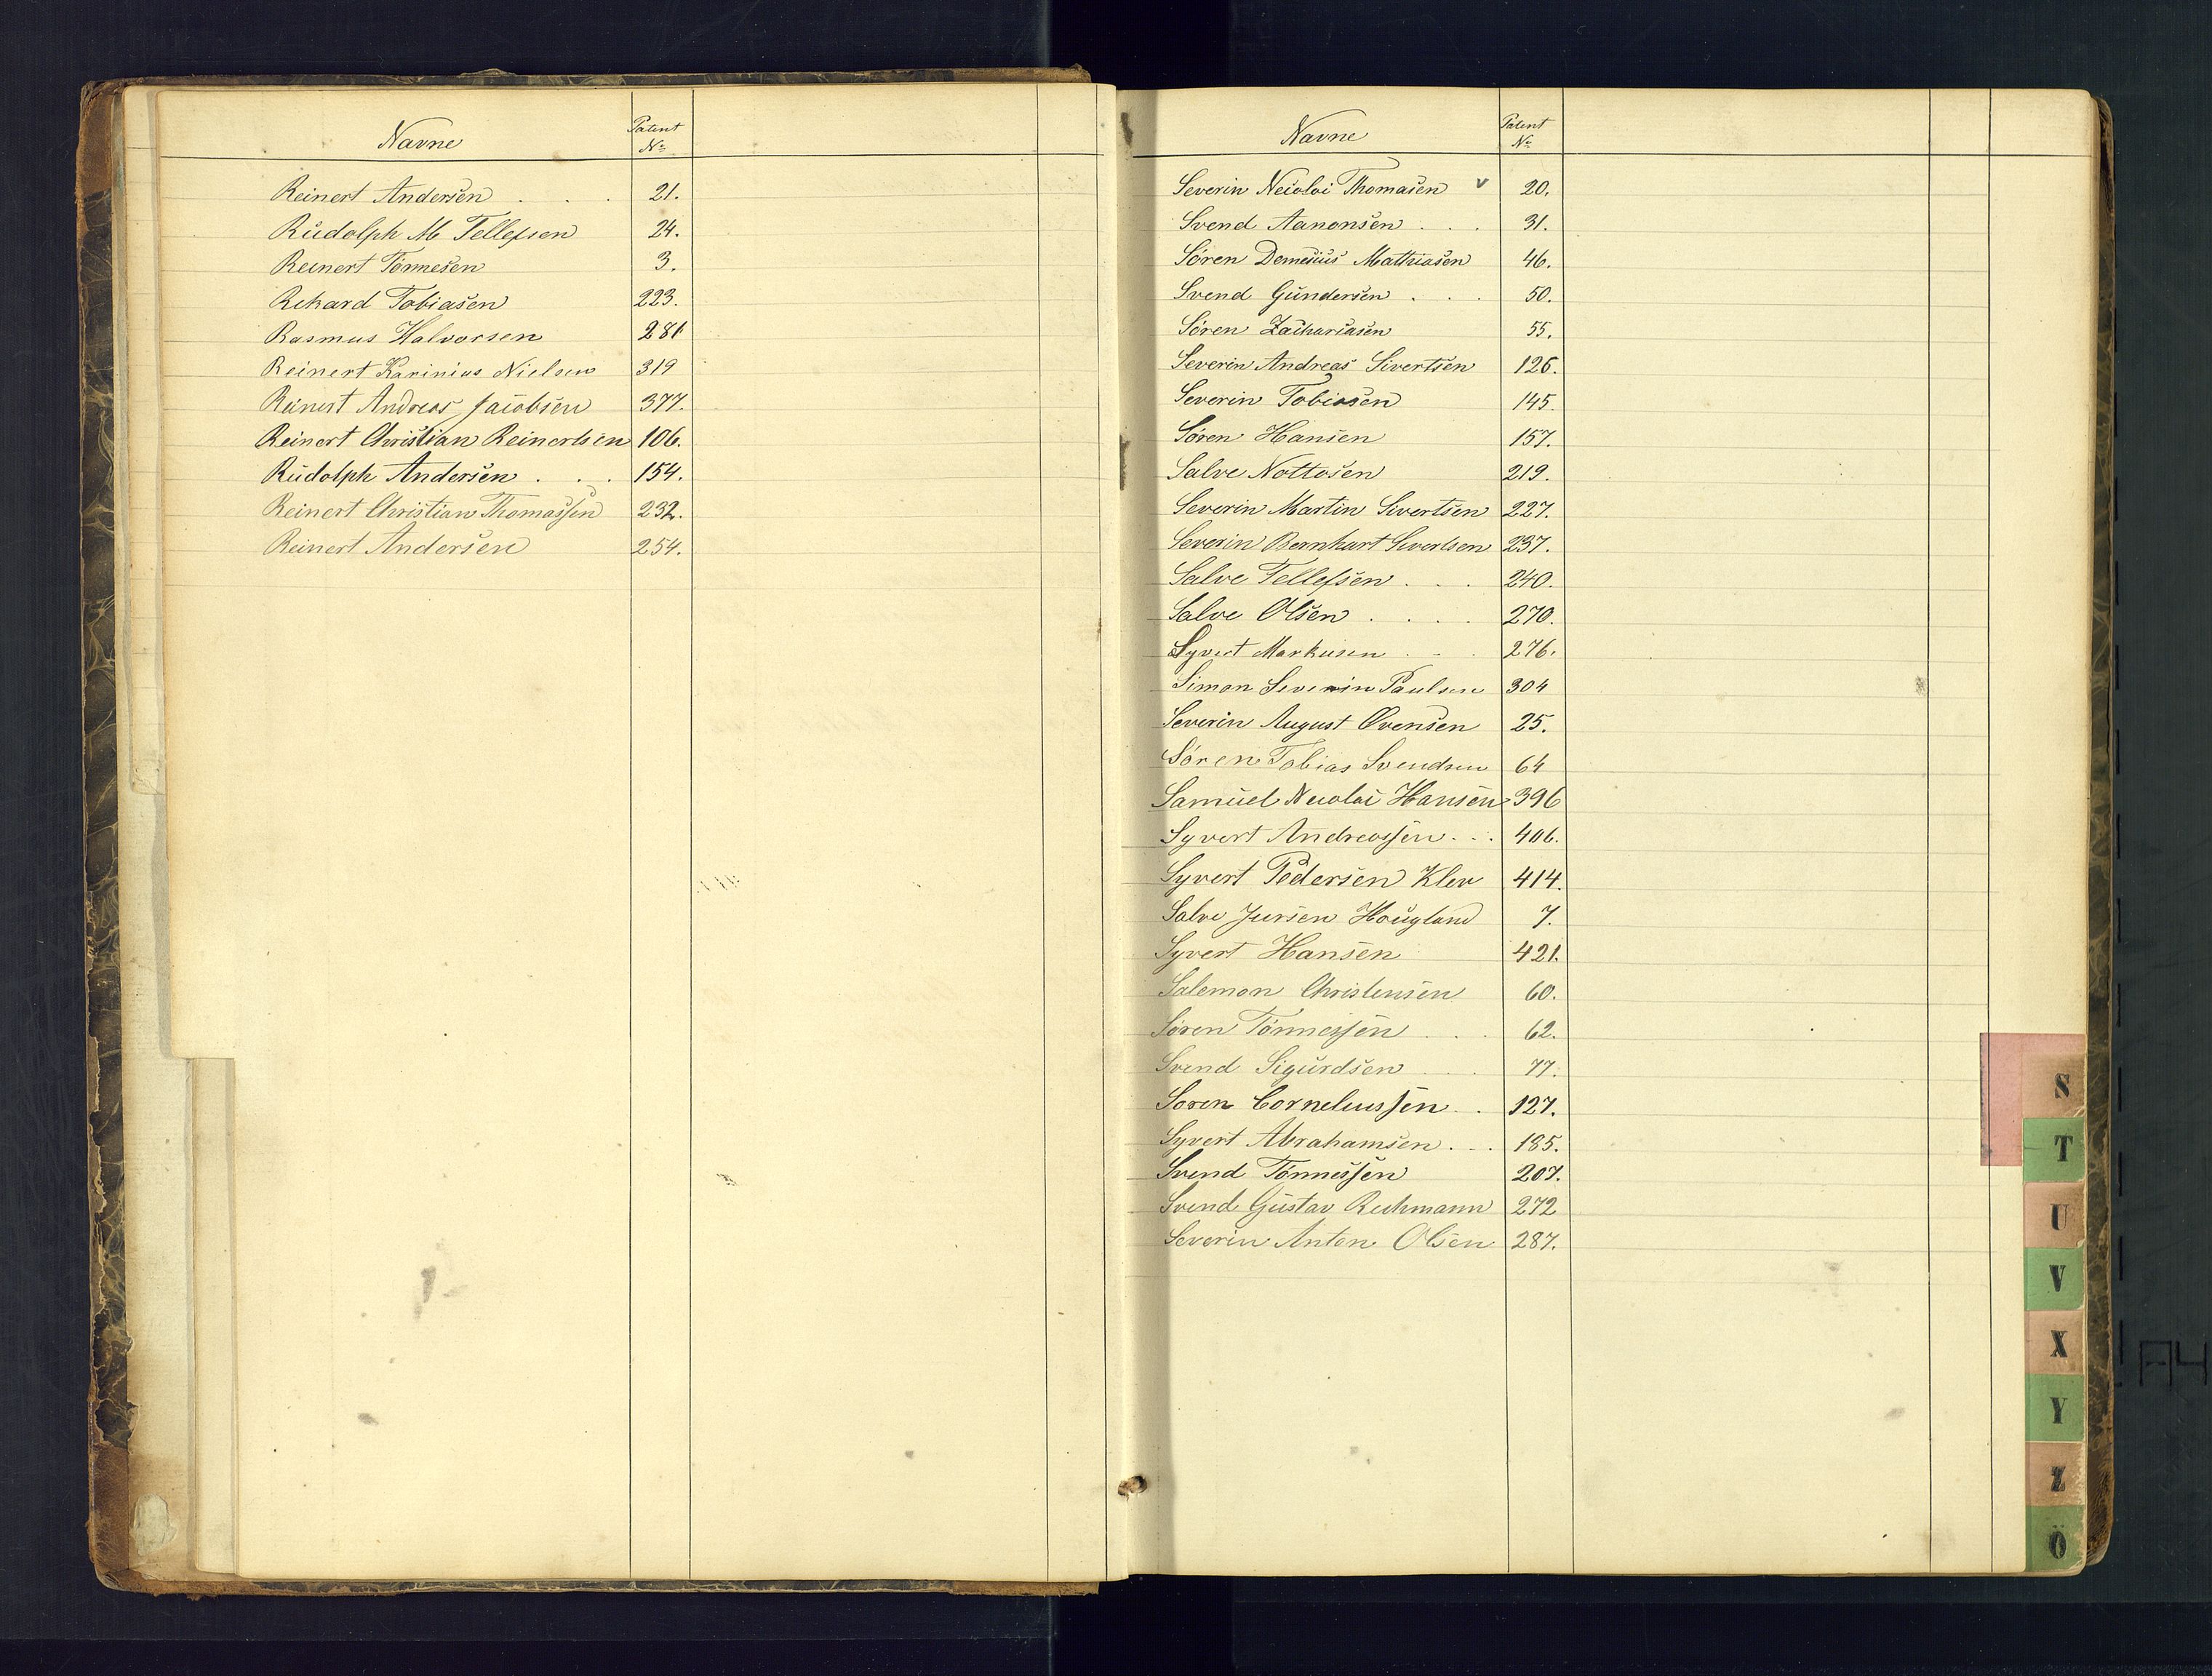 Navne Patent No
Reinert Andersen . . . 21.
Rudolph M Tellefsen 24.
Reinert Tönnesen 3.
Rchard Tobiasen 223.
Rasmus Halvorsen 281
Reinert Karinius Nielsen 319
Reinert Andreas Jacobsen 377.
Reinert Christian Reinertsen 106.
Rudolph Andersen . . . 154.
Reinert Christian Thomassen 232.
Reinert Andersen 254.
Navne Patent No
Severin Necolai Thomasen v 20.
Svend Aanonsen . . . 31.
Sören Demesius Mathiasen 46.
Svend Gundersen . . . 50.
Sören Zachariasen 55.
Severin Andreas Sivertsen 126.
Severin Tobiasen 145.
Sören Hansen 157.
Salve Nottosen 219.
Severin Martin Sivertsen 227.
Severin Bernhart Sivertsen 237.
Salve Tellefsen . . . 240.
Salve Olsen . . . . 270.
Syvert Markusen . . . 276.
Simon Severin Paulsen 304
Severin August Evensen 25.
Sören Tobias Svendsen 64
Samuel Necolai Hansen 396
Syvert Andreassen . . . 406.
Syvert Pedersen Klev 414.
Salve Jensen Hougland 7.
Syvert Hansen 421.
Salemon Christensen 60.
Sören Tönnessen . . . 62.
Svend Sigurdsen . . . 77.
Soren Corneliussen . . 127.
Syvert Abrahamsen . . . 185.
Svend Tönnessen 207.
Svend Gustav Reichmann 272
Severin Anton Olsen 287.
S
T
U
V
X
Y
Z
Ö